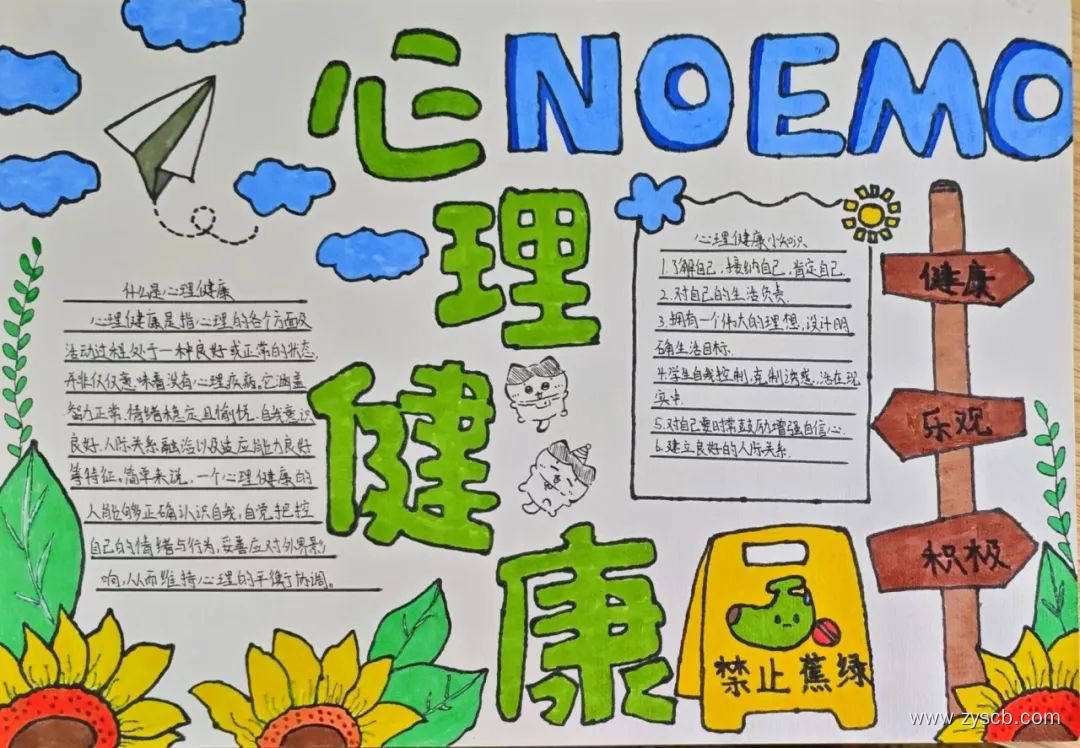 心理健康
NOEMO
什么是心理健康
心理健康是指心理的各个方面及
活动过程处于一种良好或正常的状态,
并非仅仅意味着没有心理疾病。它涵盖
智力正常、情绪稳定且愉悦、自我意识
良好、人际关系融洽以及适应能力良好
等特征。简单来说,一个心理健康的
人能够正确认识自我,自觉把控
自己的情绪与行为,妥善应对外界影
响,从而维持心理的平衡协调。
心理健康小知识
1.了解自己,接纳自己,肯定自己
2.对自己的生活负责.
3.拥有一个伟大的理想,设计明
确生活目标.
4.学生自我控制,克制诱惑,活在现
实中.
5.对自己要时常鼓励增强自信心.
6.建立良好的人际关系.
健康
乐观
积极
禁止蕉绿
www.zyscb.com